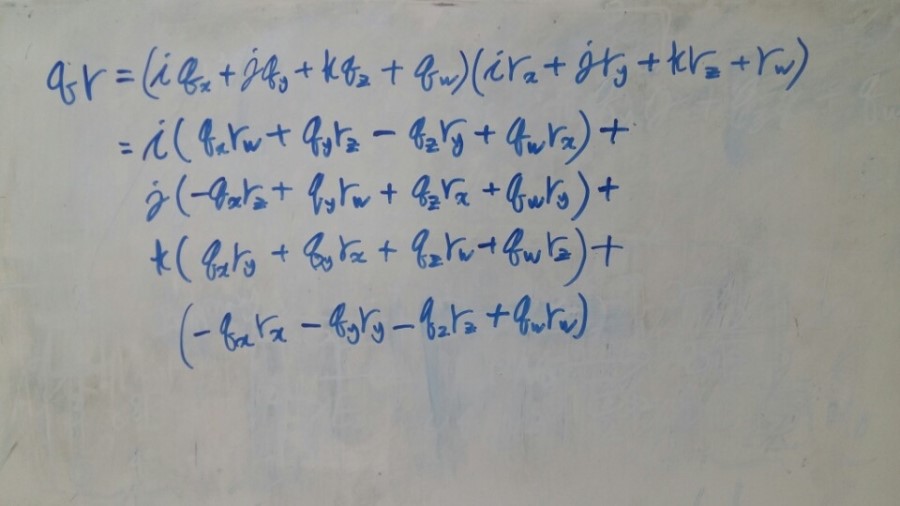 qr = (iqₓ + jq_y + kq_z + q_w)(irₓ + jr_y + kr_z + r_w)
= i(qₓr_w + q_yr_z - q_zr_y + q_wrₓ) +
j(-qₓr_z + q_yr_w + q_zrₓ + q_wr_y) +
k(qₓr_y + q_yrₓ + q_zr_w + q_wr_z) +
(-qₓrₓ - q_yr_y - q_zr_z + q_wr_w)